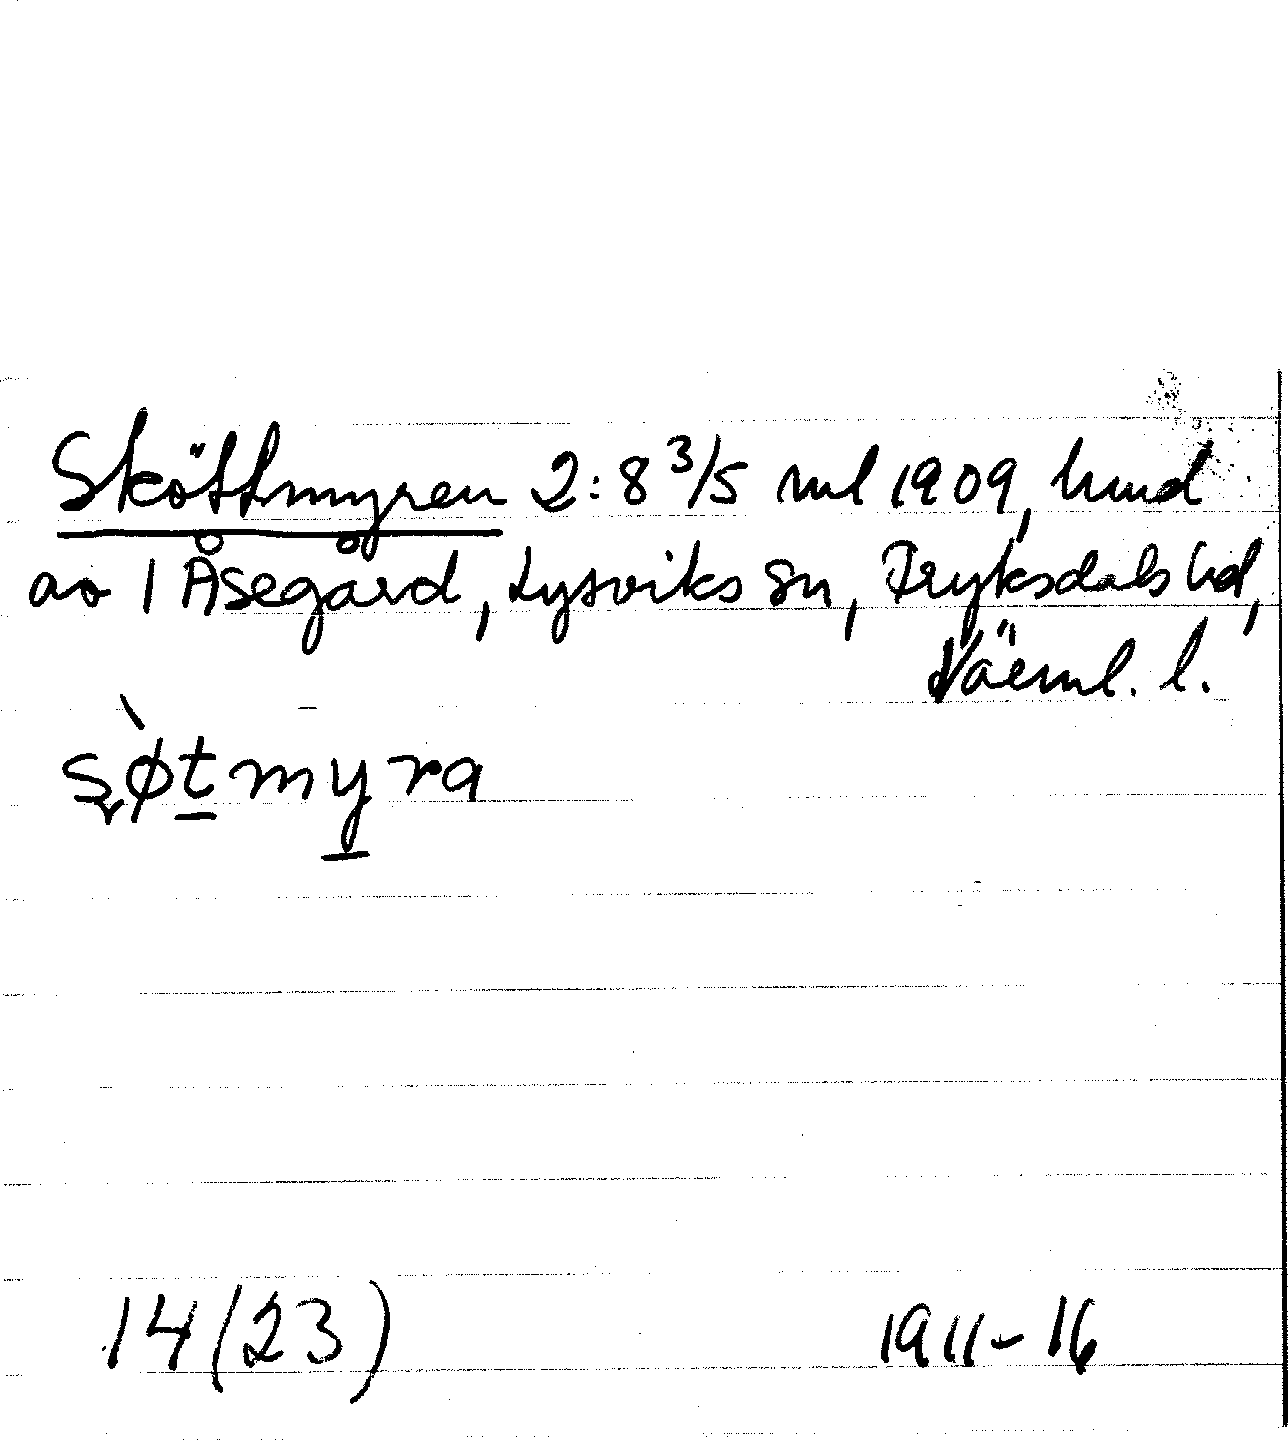 Sköttmyren 2:8 3/5 ml 1909, hmd
av 1 Åsegård, Lysviks sn, Fryksdals hd,
Värml. l.
s̬ø̀tmyra
14(23) 1911-16